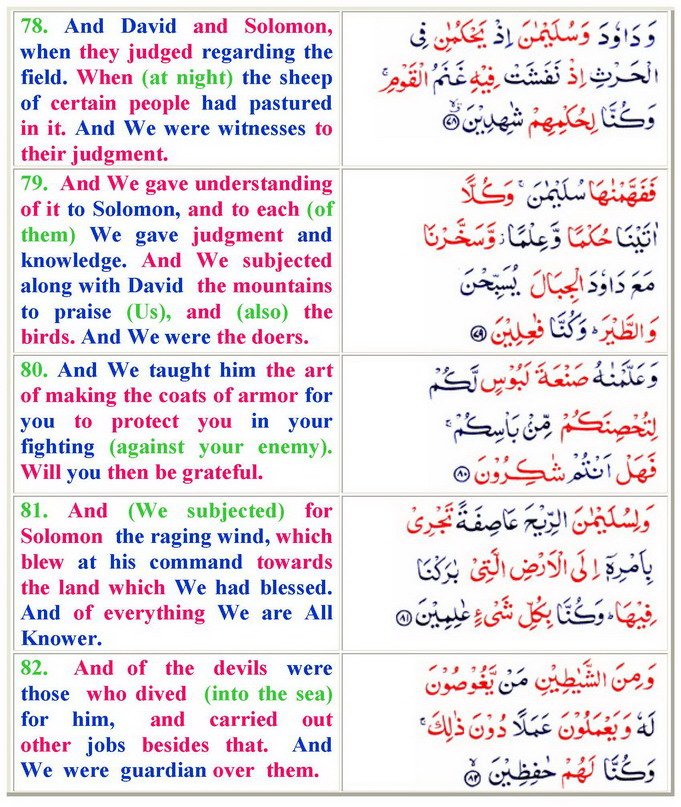 78. And David and Solomon,
when they judged regarding the
field. When (at night) the sheep
of certain people had pastured
in it. And We were witnesses to
their judgment.
وَ دَاوٗدَ وَسُلَيْمٰنَ اِذْ يَحْكُمٰنِ فِى
الْحَرْثِ اِذْ نَفَشَتْ فِيْهِ غَنَمُ الْقَوْمِۚ
وَكُنَّا لِحُكْمِهِمْ شٰهِدِيْنَ ۙ‏﴿۷۸﴾
79. And We gave understanding
of it to Solomon, and to each (of
them) We gave judgment and
knowledge. And We subjected
along with David the mountains
to praise (Us), and (also) the
birds. And We were the doers.
فَفَهَّمْنٰهَا سُلَيْمٰنَۚ وَكُلًّا
اٰتَيْنَا حُكْمًا وَّعِلْمًاؗ وَّسَخَّرْنَا
مَعَ دَاوٗدَ الْجِبَالَ يُسَبِّحْنَ
وَالطَّيْرَؕ وَكُنَّا فٰعِلِيْنَ ﴿۷۹﴾
80. And We taught him the art
of making the coats of armor for
you to protect you in your
fighting (against your enemy).
Will you then be grateful.
وَعَلَّمْنٰهُ صَنْعَةَ لَبُوْسٍ لَّكُمْ
لِتُحْصِنَكُمْ مِّنْۢ بَاْسِكُمْۚ
فَهَلْ اَنْتُمْ شٰكِرُوْنَ ﴿۸۰﴾
81. And (We subjected) for
Solomon the raging wind, which
blew at his command towards
the land which We had blessed.
And of everything We are All
Knower.
وَلِسُلَيْمٰنَ الرِّيْحَ عَاصِفَةً تَجْرِىْ
بِاَمْرِهٖۤ اِلَى الْاَرْضِ الَّتِىْ بٰرَكْنَا
فِيْهَاؕ وَكُنَّا بِكُلِّ شَىْءٍ عٰلِمِيْنَ ﴿۸۱﴾
82. And of the devils were
those who dived (into the sea)
for him, and carried out
other jobs besides that. And
We were guardian over them.
وَمِنَ الشَّيٰطِيْنِ مَنْ يَّغُوْصُوْنَ
لَهٗ وَيَعْمَلُوْنَ عَمَلًا دُوْنَ ذٰلِكَۚ
وَكُنَّا لَهُمْ حٰفِظِيْنَ ۙ‏﴿۸۲﴾